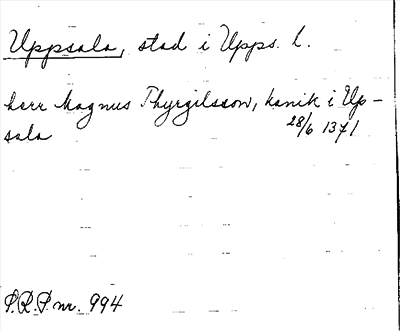 Uppsala, stad i Upps. l.
herr Magnus Thyrgilsson, kanik i Up-
sala
28/6 1371
S.R.P. nr. 994